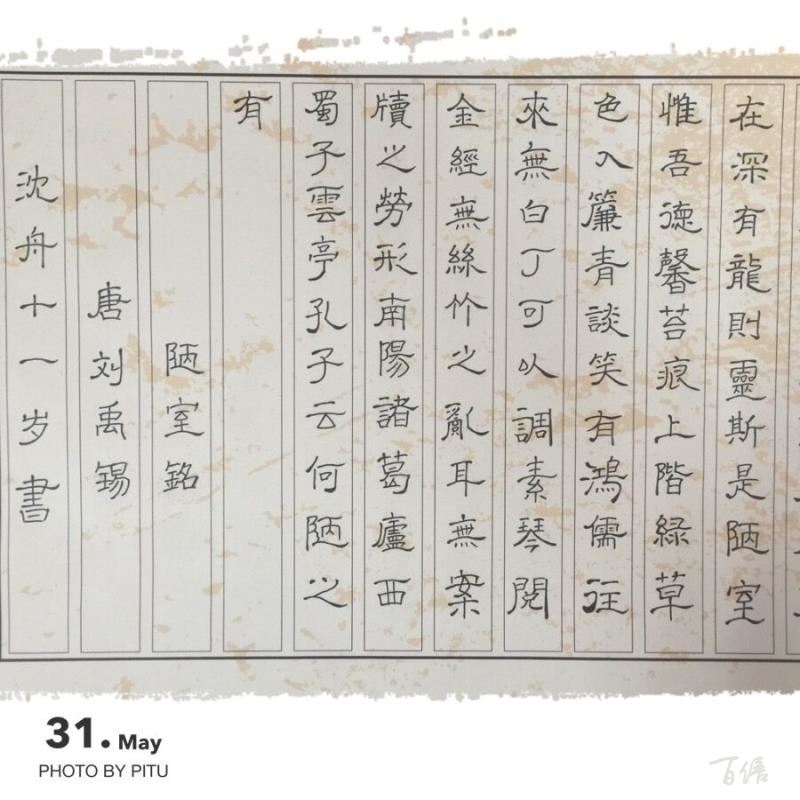 在深有龍則靈斯是陋室
惟吾德馨苔痕上階綠草
色入簾青談笑有鴻儒往
來無白丁可以調素琴閱
金經無絲竹之亂耳無案
牘之勞形南陽諸葛廬西
蜀子雲亭孔子云何陋之
有
陋室銘
唐刘禹錫
沈舟十一岁書
31. May
PHOTO BY PITU